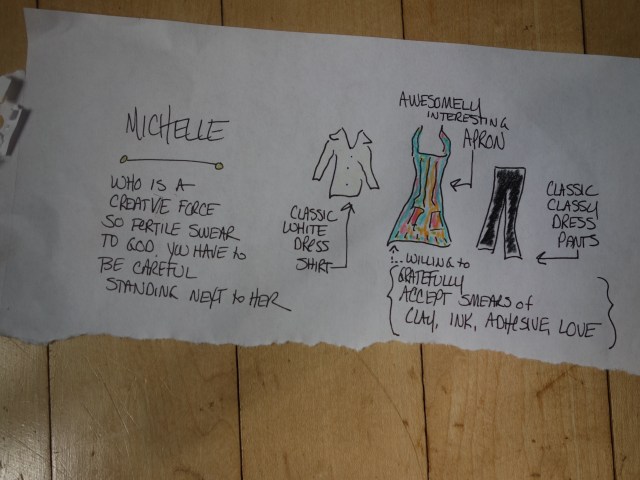 MICHELLE
WHO IS A
CREATIVE FORCE
SO FERTILE SWEAR
TO GOD YOU HAVE to
BE CAREFUL
STANDING NEXT to HER
CLASSIC
WHITE
DRESS
SHIRT
AWESOMELY
INTERESTING
APRON
CLASSIC
CLASSY
DRESS
PANTS
... WILLING to
GRATEFULLY
ACCEPT SMEARS of
CLAY, INK, ADHESIVE, LOVE